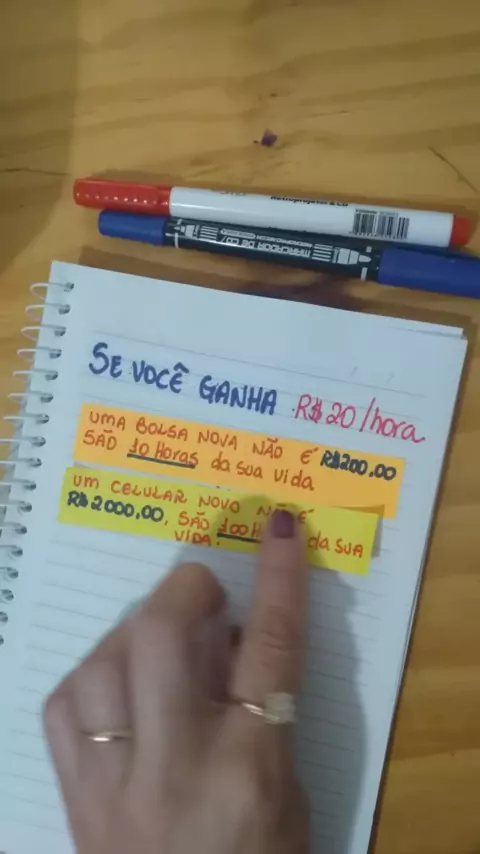 Retroprojetor & CD
MARCADOR DE CD
SE VOCÊ GANHA R$20/hora
UMA BOLSA NOVA NÃO É R$200,00
SÃO 10 HORAS da sua vida
UM CELULAR NOVO NÃO É
R$2000,00, SÃO 100H da SUA
VIDA.